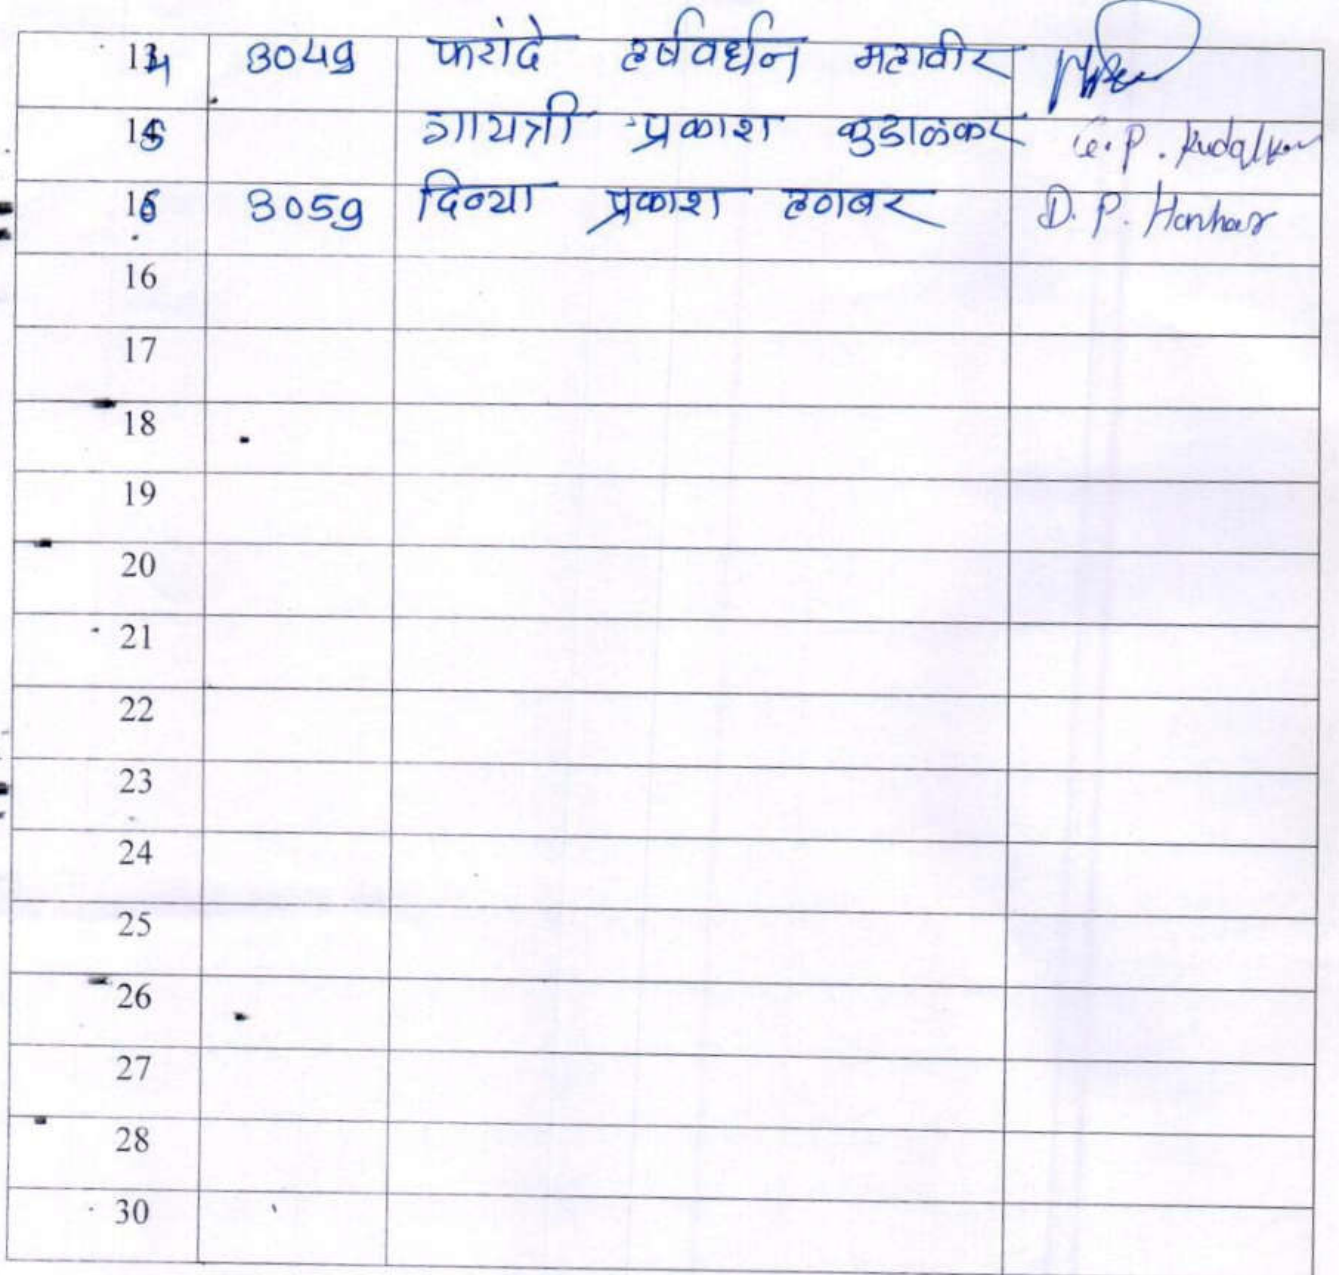 14 3049 फरांदे हर्षवर्धन महावीर
15 गायत्री प्रकाश कुडाळकर G. P. Kudalkar
16 3059 दिव्या प्रकाश हणबर D. P. Hanbar
16
17
18
19
20
21
22
23
24
25
26
27
28
30